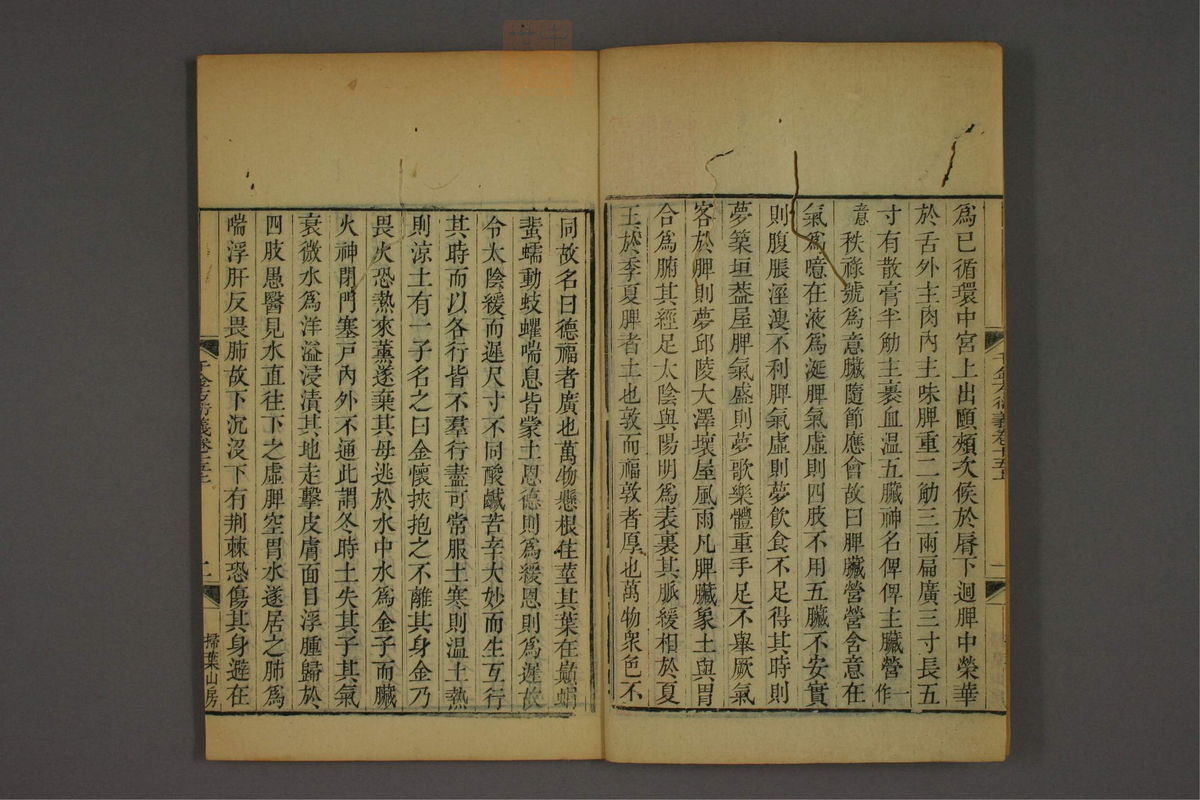 爲已循環中宮上出頤頰次候於脣下迴脾中榮華
於舌外主肉內主味脾重二觔三兩扁廣三寸長五
寸有散膏半觔主裹血温五臟神名俾俾主臟營一作
意秩祿號爲意臟隨節應會故曰脾臟營營含意在
氣爲噫在液爲涎脾氣虛則四肢不用五臟不安實
則腹脹涇溲不利脾氣虛則夢飲食不足得其時則
夢築垣葢屋脾氣盛則夢歌樂體重手足不舉厥氣
客於脾則夢邱陵大澤壞屋風雨凡脾臟象土與胃
合爲腑其經足太陰與陽明爲表裏其脈緩相於夏
王於季夏脾者土也敦而福敦者厚也萬物衆色不
同故名曰德福者廣也萬物懸根住莖其葉在巔蜎
蜚蠕動蚑蠷喘息皆蒙土恩德則爲緩恩則爲遲故
令太陰緩而遲尺寸不同酸鹹苦辛大妙而生互行
其時而以各行皆不羣行盡可常服土寒則温土熱
則涼土有一子名之曰金懷挾抱之不離其身金乃
畏火恐熱來薰遂棄其母逃於水中水爲金子而臟
火神閉門塞戸內外不通此謂冬時土失其子其氣
衰微水爲洋溢浸漬其地走擊皮膚面目浮腫歸於
四肢愚醫見水直往下之虛脾空胃水遂居之肺爲
喘浮肝反畏肺故下沉沒下有荆棘恐傷其身避在
千金方衍義卷十五上
二
掃葉山房